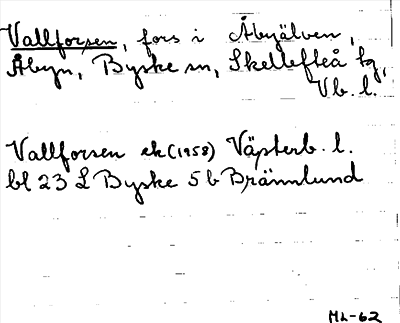 Vallforsen, fors i Åbyälven,
Åbyn, Byske sn, Skellefteå tg,
Vb. l.
Vallforsen ek (1958) Västerb. l.
bl 23 L Byske 5 b Brännlund
ML-62